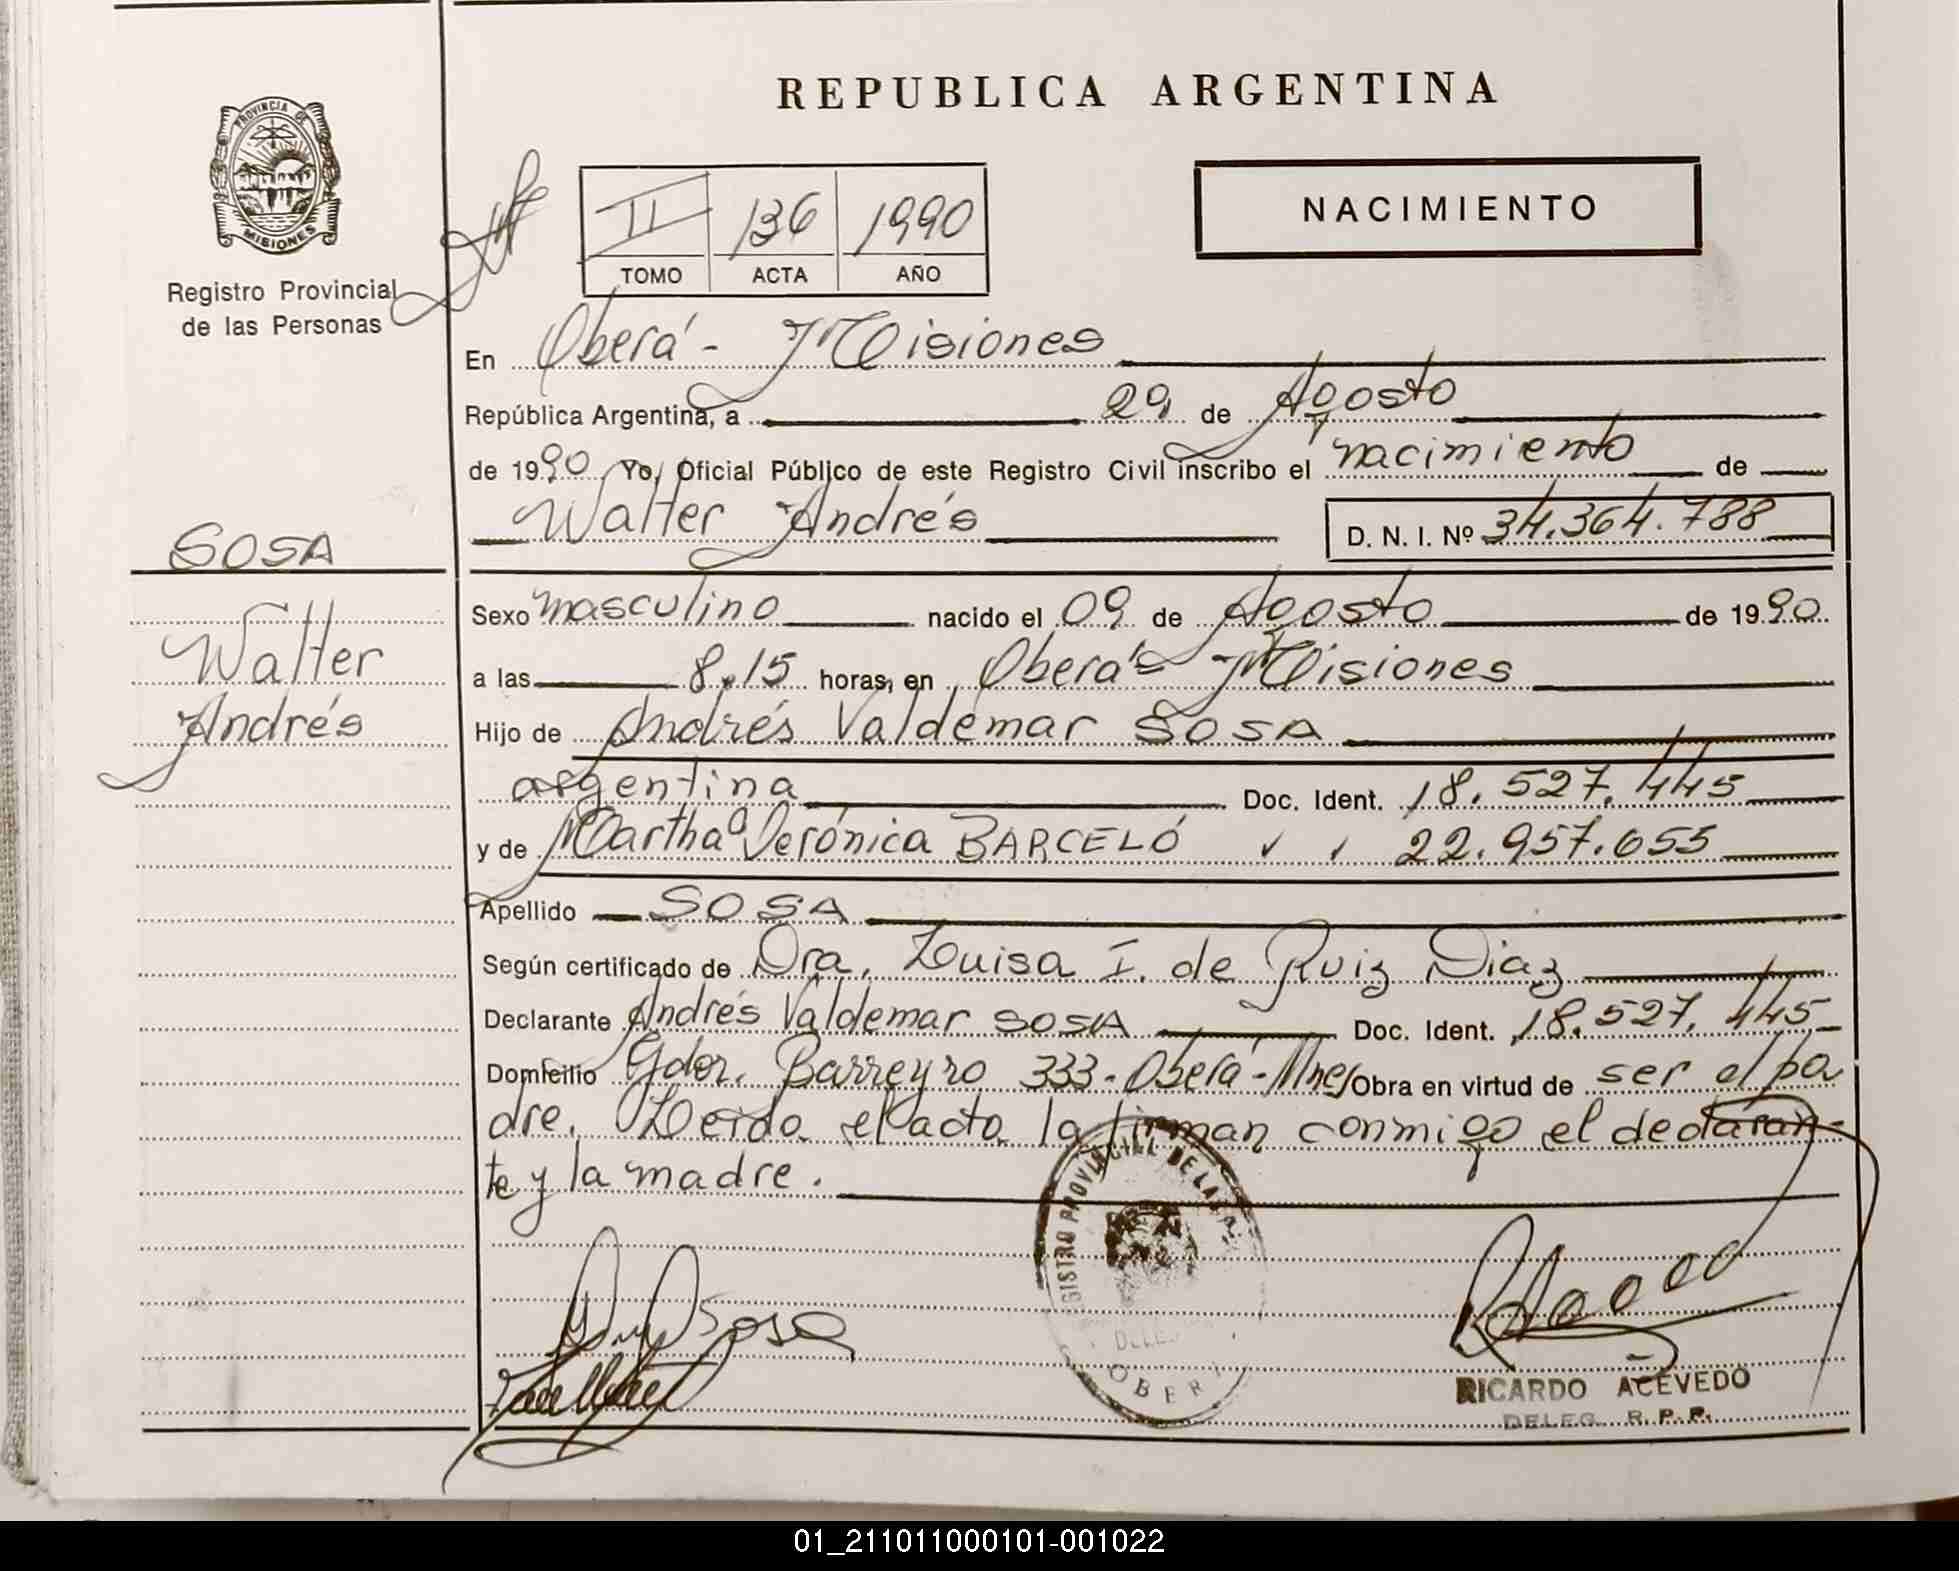 REPUBLICA ARGENTINA
PROVINCIA DE
MISIONES
Registro Provincial
de las Personas
II 136 1990
TOMO ACTA AÑO
NACIMIENTO
En Oberá - Misiones
República Argentina, a 29 de Agosto
de 1990 Yo, Oficial Público de este Registro Civil inscribo el nacimiento de
Walter Andrés D. N. I. Nº 34.364.788
SOSA
Walter
Andrés
Sexo masculino nacido el 09 de Agosto de 1990
a las 8.15 horas, en Oberá - Misiones
Hijo de Andrés Valdemar SOSA
argentina Doc. Ident. 18.527.445
y de Martha Verónica BARCELÓ 22.957.655
Apellido SOSA
Según certificado de Dra. Luisa I. de Ruiz Diaz
Declarante Andrés Valdemar SOSA Doc. Ident. 18.527.445
Domicilio Gdor. Barreyro 333 - Oberá - Mnes Obra en virtud de ser el pa
dre. Leida el acta la firman conmigo el declaran-
te y la madre.
Sosa
RICARDO ACEVEDO
DELEG. R. P. P.
01_211011000101-001022